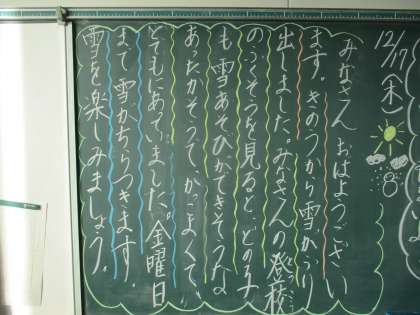 12/17(木)
みなさん おはようござい
ます。きのうから雪がふり
出しました。みなさんの登校
のふくそうを見ると、どの子
も雪あそびができそうな
あたたかそうで、かっこよくて、
とてもにあっていました。金曜日
まで雪がちらつきます。
雪を楽しみましょう。